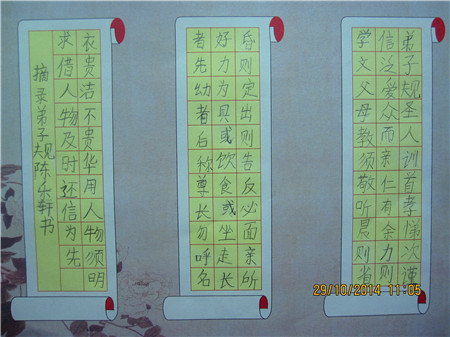 弟子规圣人训首孝悌次谨
信泛爱众而亲仁有余力则
学文父母教须敬听晨则省
昏则定出则告反必面亲所
好力为具或饮食或坐走长
者先幼者后称尊长勿呼名
衣贵洁不贵华用人物须明
求借人物及时还信为先
摘录弟子规陈乐轩书
29/10/2014 11:05